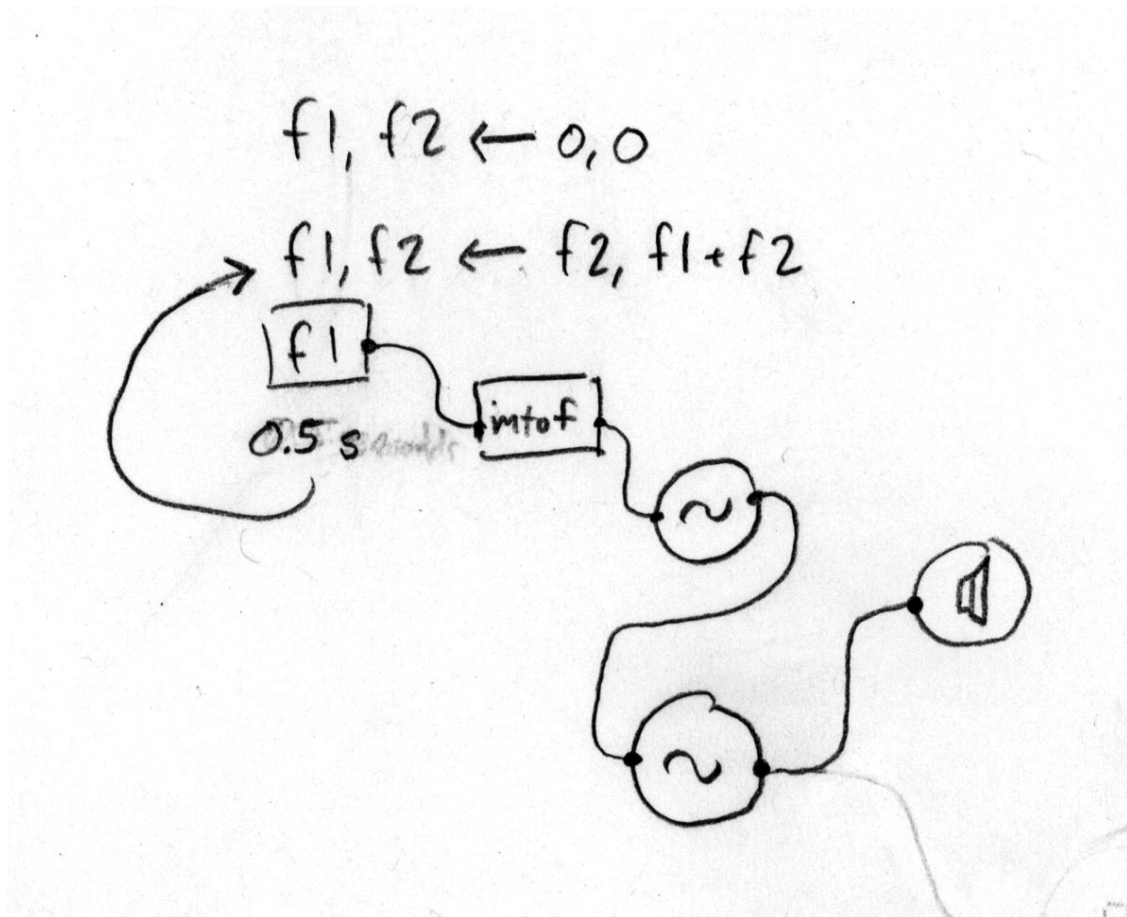 f1, f2 ← 0, 0
f1, f2 ← f2, f1+f2
f1
0.5 s
mtof
~
~